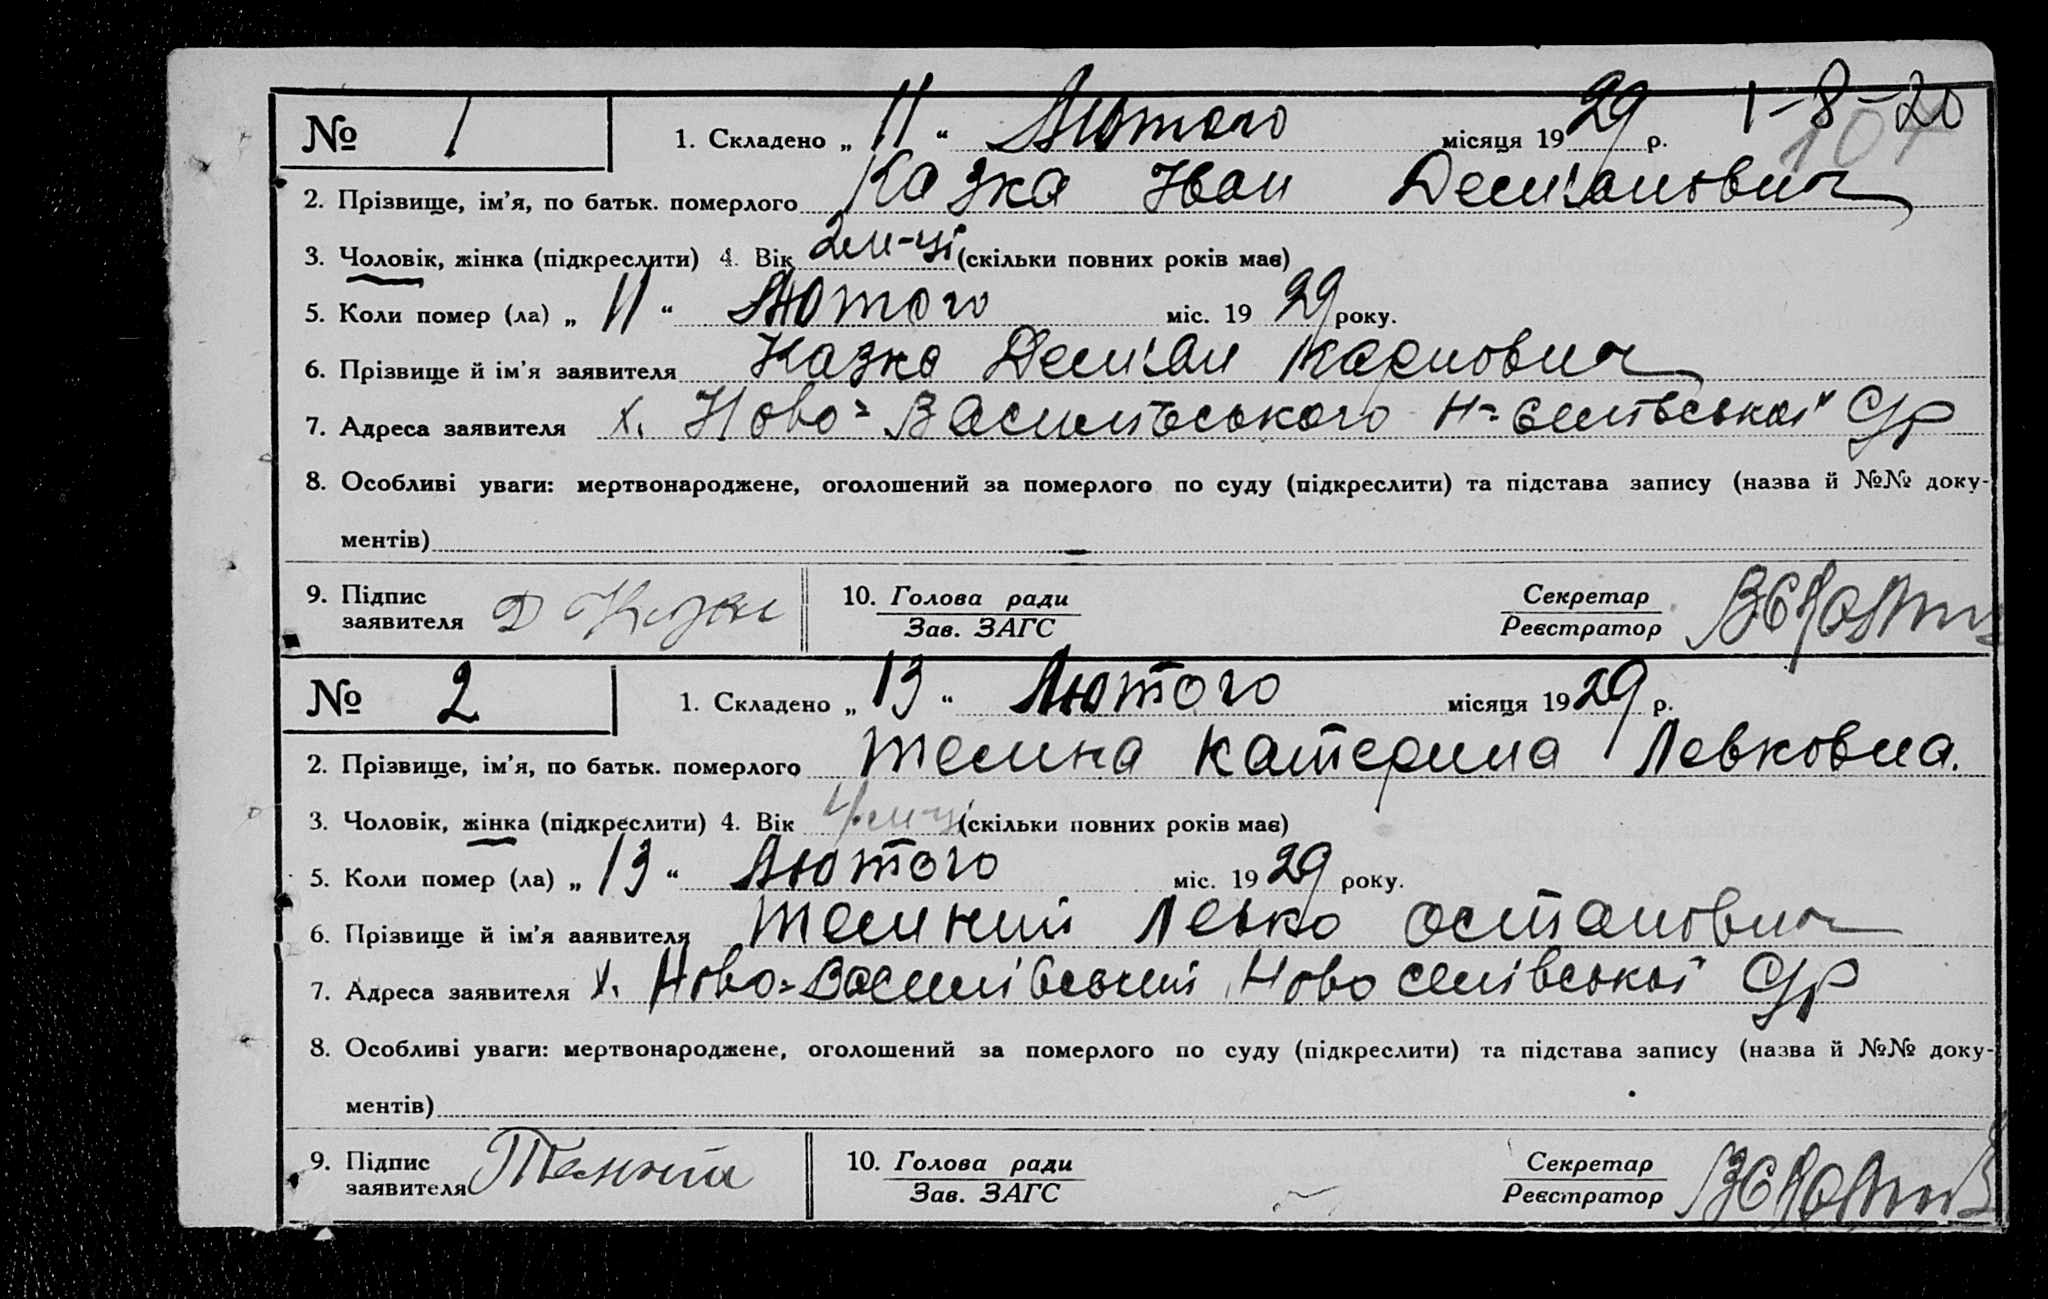 № 1 1. Складено „ 11 “ Лютого місяця 1929 р. 1-8-20
104
2. Прізвище, ім'я, по батьк. померлого Казка Іван Дем'янович
3. Чоловік, жінка (підкреслити) 4. Вік 2 м-ці (скільки повних років має)
5. Коли помер (ла) „ 11 “ Лютого міс. 1929 року.
6. Прізвище й ім'я заявителя Казка Дем'ян Карпович
7. Адреса заявителя х. Ново-Василівського Н-Селівської С/р
8. Особливі уваги: мертвонароджене, оголошений за померлого по суду (підкреслити) та підстава запису (назва й №№ доку-
ментів)
9. Підпис заявителя Д Казка 10. Голова ради Зав. ЗАГС Секретар Реєстратор
№ 2 1. Складено „ 13 “ Лютого місяця 1929 р.
2. Прізвище, ім'я, по батьк. померлого Катерина Левковна.
3. Чоловік, жінка (підкреслити) 4. Вік 4 м-ці (скільки повних років має)
5. Коли помер (ла) „ 13 “ Лютого міс. 1929 року.
6. Прізвище й ім'я заявителя Левко Остапович
7. Адреса заявителя х. Ново-Василівський Ново селівської С/р
8. Особливі уваги: мертвонароджене, оголошений за померлого по суду (підкреслити) та підстава запису (назва й №№ доку-
ментів)
9. Підпис заявителя 10. Голова ради Зав. ЗАГС Секретар Реєстратор